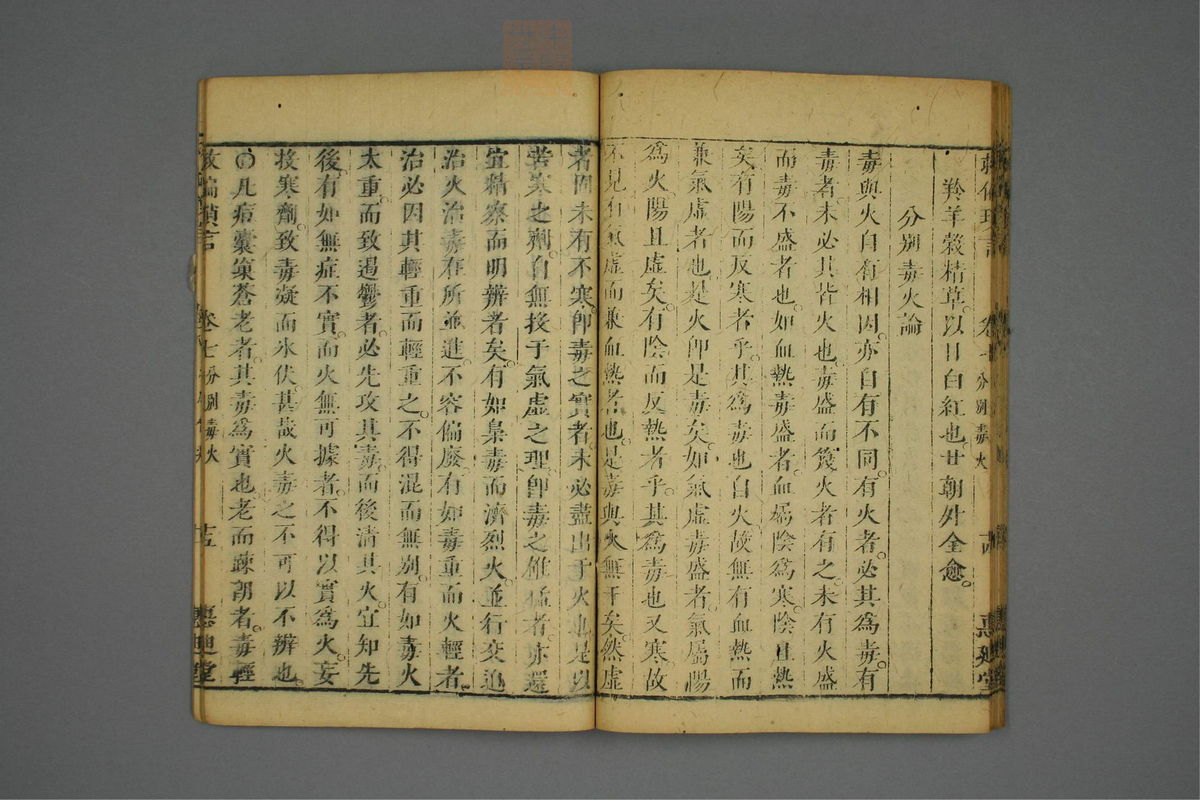 救偏瑣言 卷七 分別毒火 十四 惠迪堂
羚羊穀精草以目白紅也廿朝外全愈
分別毒火論
毒與火自有相因亦自有不同有火者必其為毒有
毒者未必其皆火也毒盛而發火者有之未有火盛
而毒不盛者也如血熱毒盛者血屬陰為寒陰且熱
矣有陽而反寒者乎其為毒也自火故無有血熱而
兼氣虛者也是火即是毒矣如氣虛毒盛者氣屬陽
為火陽且虛矣有陰而反熱者乎其為毒也又寒故
不見有氣虛而兼血熱者也是毒與火無干矣然虛
者固未有不寒即毒之實者未必盡出于火也是以
苦寒之劑自無投于氣虛之理即毒之雄猛者亦還
宜精察而明辨者矣有如梟毒而濟烈火並行交迫
治火治毒在所並進不容偏廢有如毒重而火輕者
治必因其輕重而輕重之不得混而無別有如毒火
太重而致遏鬱者必先攻其毒而後清其火宜知先
後有如無症不實而火無可據者不得以實為火妄
投寒劑致毒凝而氷伏甚哉火毒之不可以不辨也
○凡痘囊窠蒼老者其毒為實也老而疎朗者毒輕
救偏瑣言 卷七 分別毒火 十五 惠迪堂